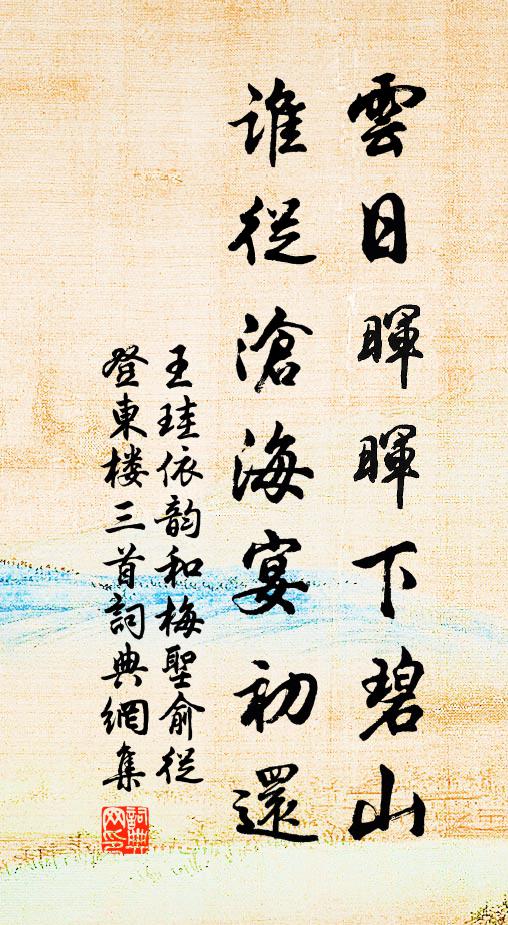 雲日暉暉下碧山
誰從滄海宴初還
王珪依韵和梅聖俞從
登東楼三首詞典網集
詞典网印